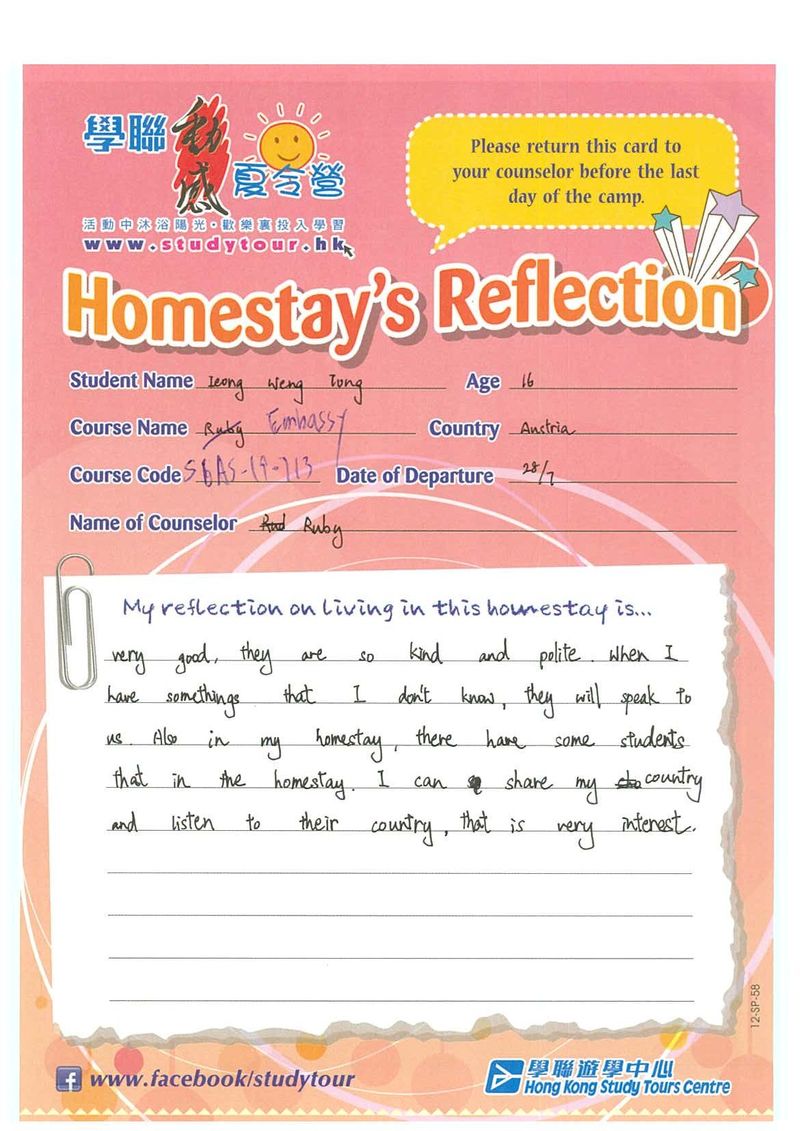 學聯 動感 夏令營
活動中沐浴陽光·歡樂裏投入學習
www.studytour.hk
Please return this card to
your counselor before the last
day of the camp.
Homestay's Reflection
Student Name Ieong Weng Tong Age 16
Course Name Ruby Embassy Country Austria
Course Code SBAS-19-713 Date of Departure 28/7
Name of Counselor Rud Ruby
My reflection on living in this homestay is...
very good, they are so kind and polite. When I
have somethings that I don't know, they will speak to
us. Also in my homestay, there have some students
that in the homestay. I can share my country
and listen to their country, that is very interest.
12-SP-58
www.facebook/studytour
學聯遊學中心
Hong Kong Study Tours Centre